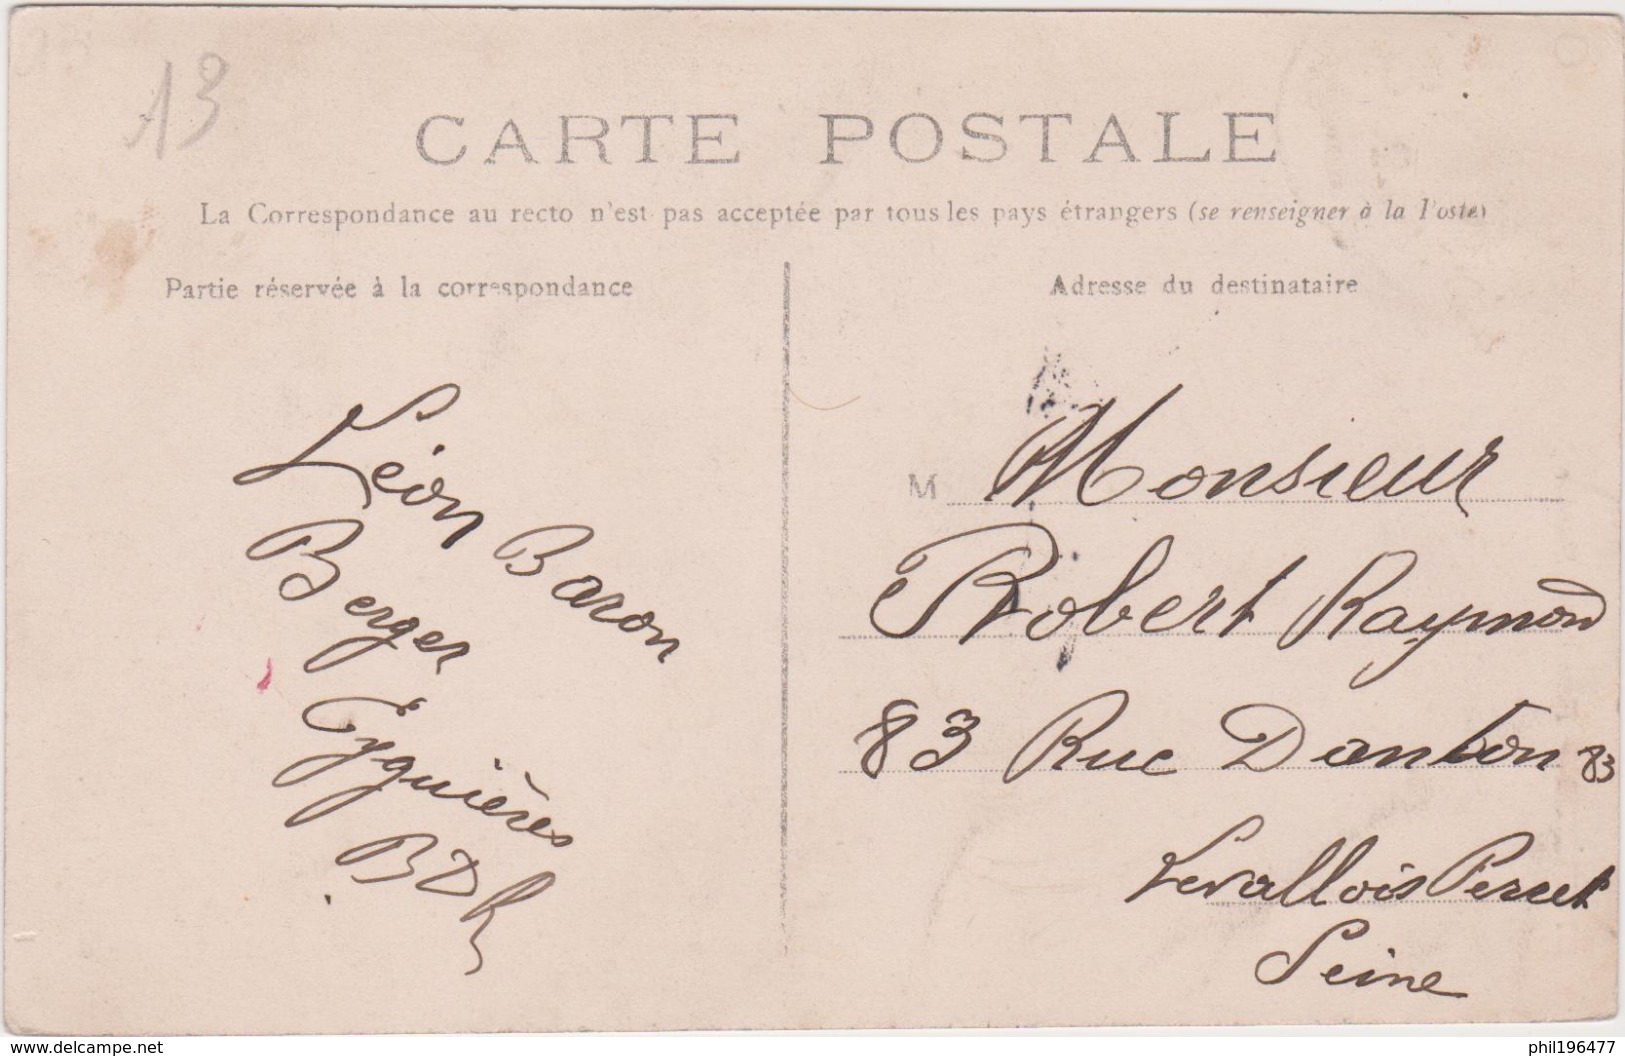 13
CARTE POSTALE
La Correspondance au recto n'est pas acceptée par tous les pays étrangers (se renseigner à la Poste)
Partie réservée à la correspondance
Adresse du destinataire
Léon Baron
Berger
Eyguières
BDR
M Monsieur
Robert Raymond
83 Rue Danton 83
Levallois Perret
Seine
www.delcampe.net
phil196477